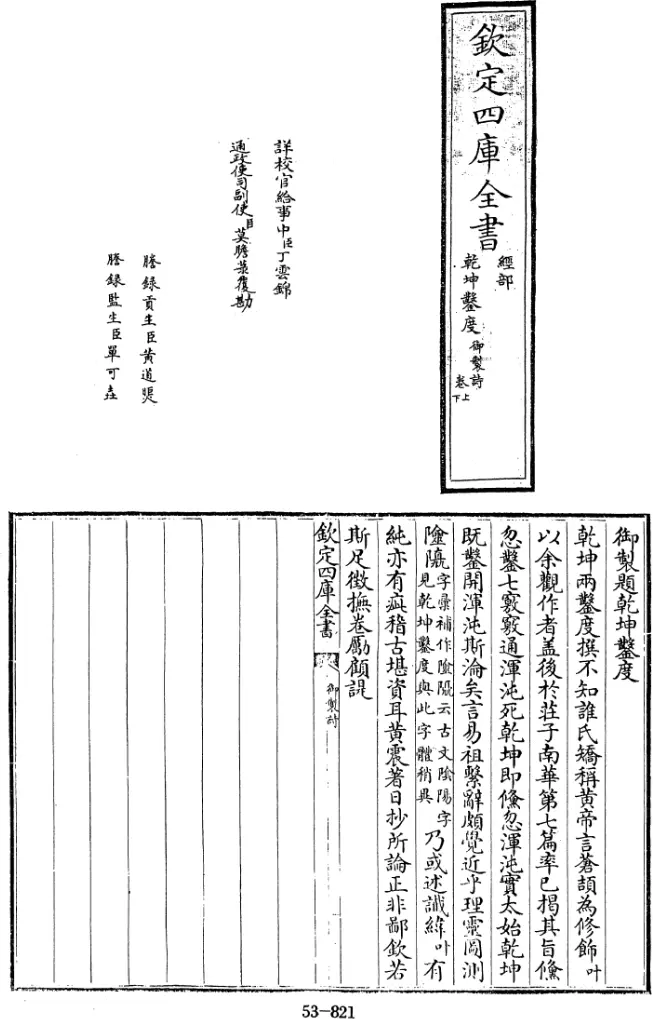 欽定四庫全書
經部
乾坤鑿度 御製詩
卷上
下
詳校官給事中臣丁雲錦
通政使司副使臣莫瞻菉覆勘
謄錄貢生臣黃道煚
謄錄監生臣單可垚
御製題乾坤鑿度
乾坤兩鑿度撰不知誰氏矯稱黃帝言蒼頡為修飾叶
以余觀作者盖後於莊子南華第七篇率已揭其旨儵
忽鑿七竅竅通渾沌死乾坤即儵忽渾沌實太始乾坤
既鑿開渾沌斯淪矣言易祖繫辭頗覺近乎理靈圖測
陰陽字彙補作陰陽云古文陰陽字見乾坤鑿度與此字體稍異乃或述讖緯叶有
純亦有疵稽古堪資耳黃震著日抄所論正非鄙欽若
斯足徵撫卷勵顧諟
欽定四庫全書
御製詩
53-821